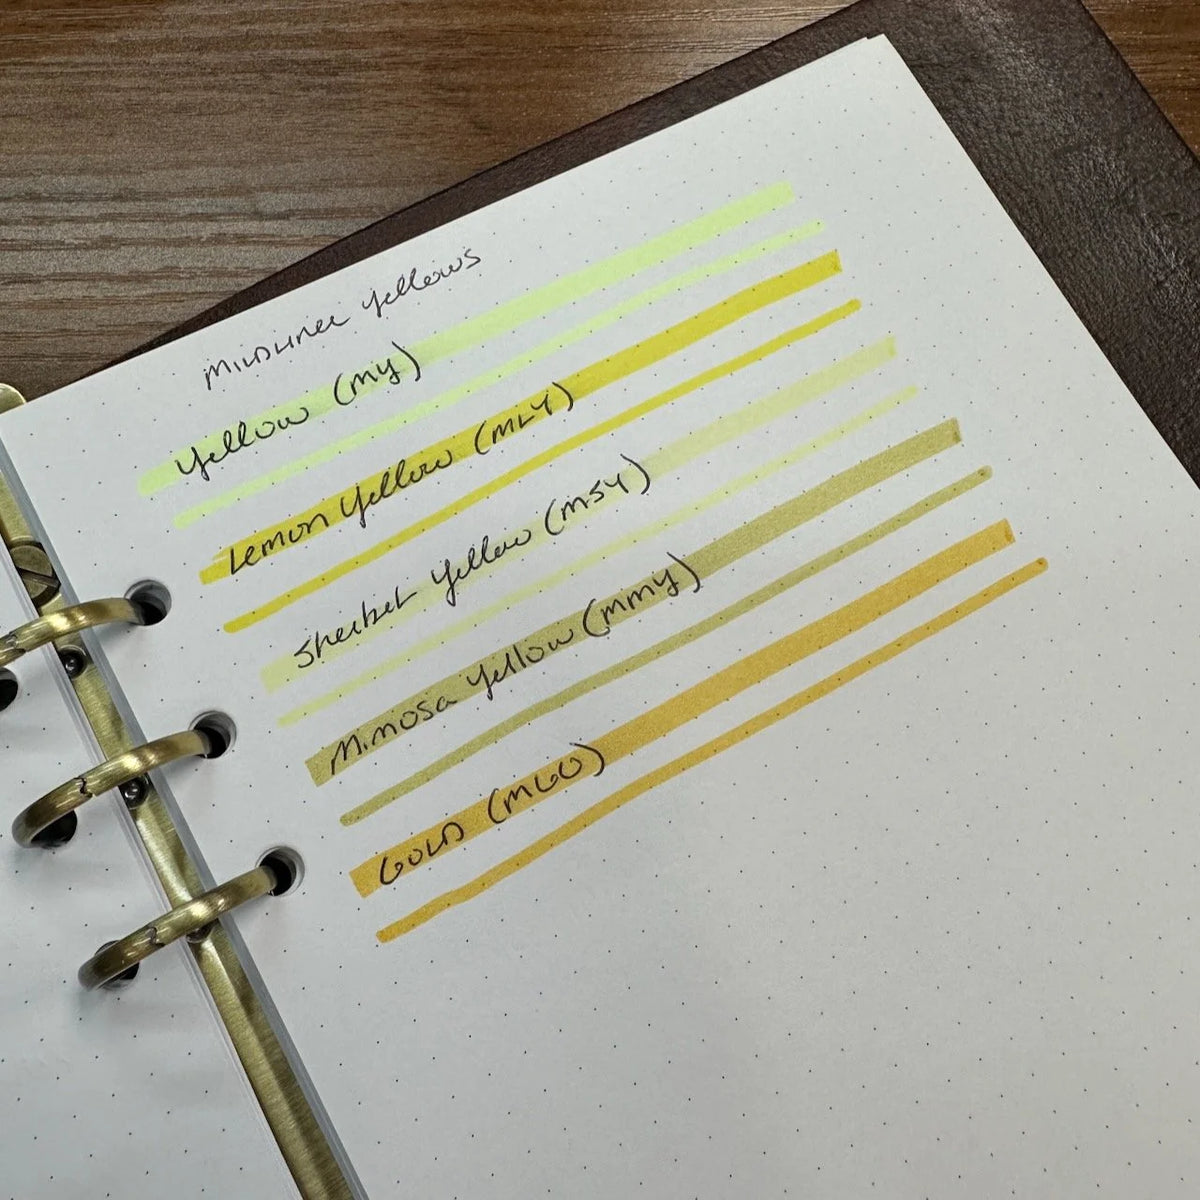 MILDLINER Yellows
Yellow (MY)
Lemon Yellow (MLY)
Sherbet Yellow (MSY)
Mimosa Yellow (MMY)
GOLD (MGO)